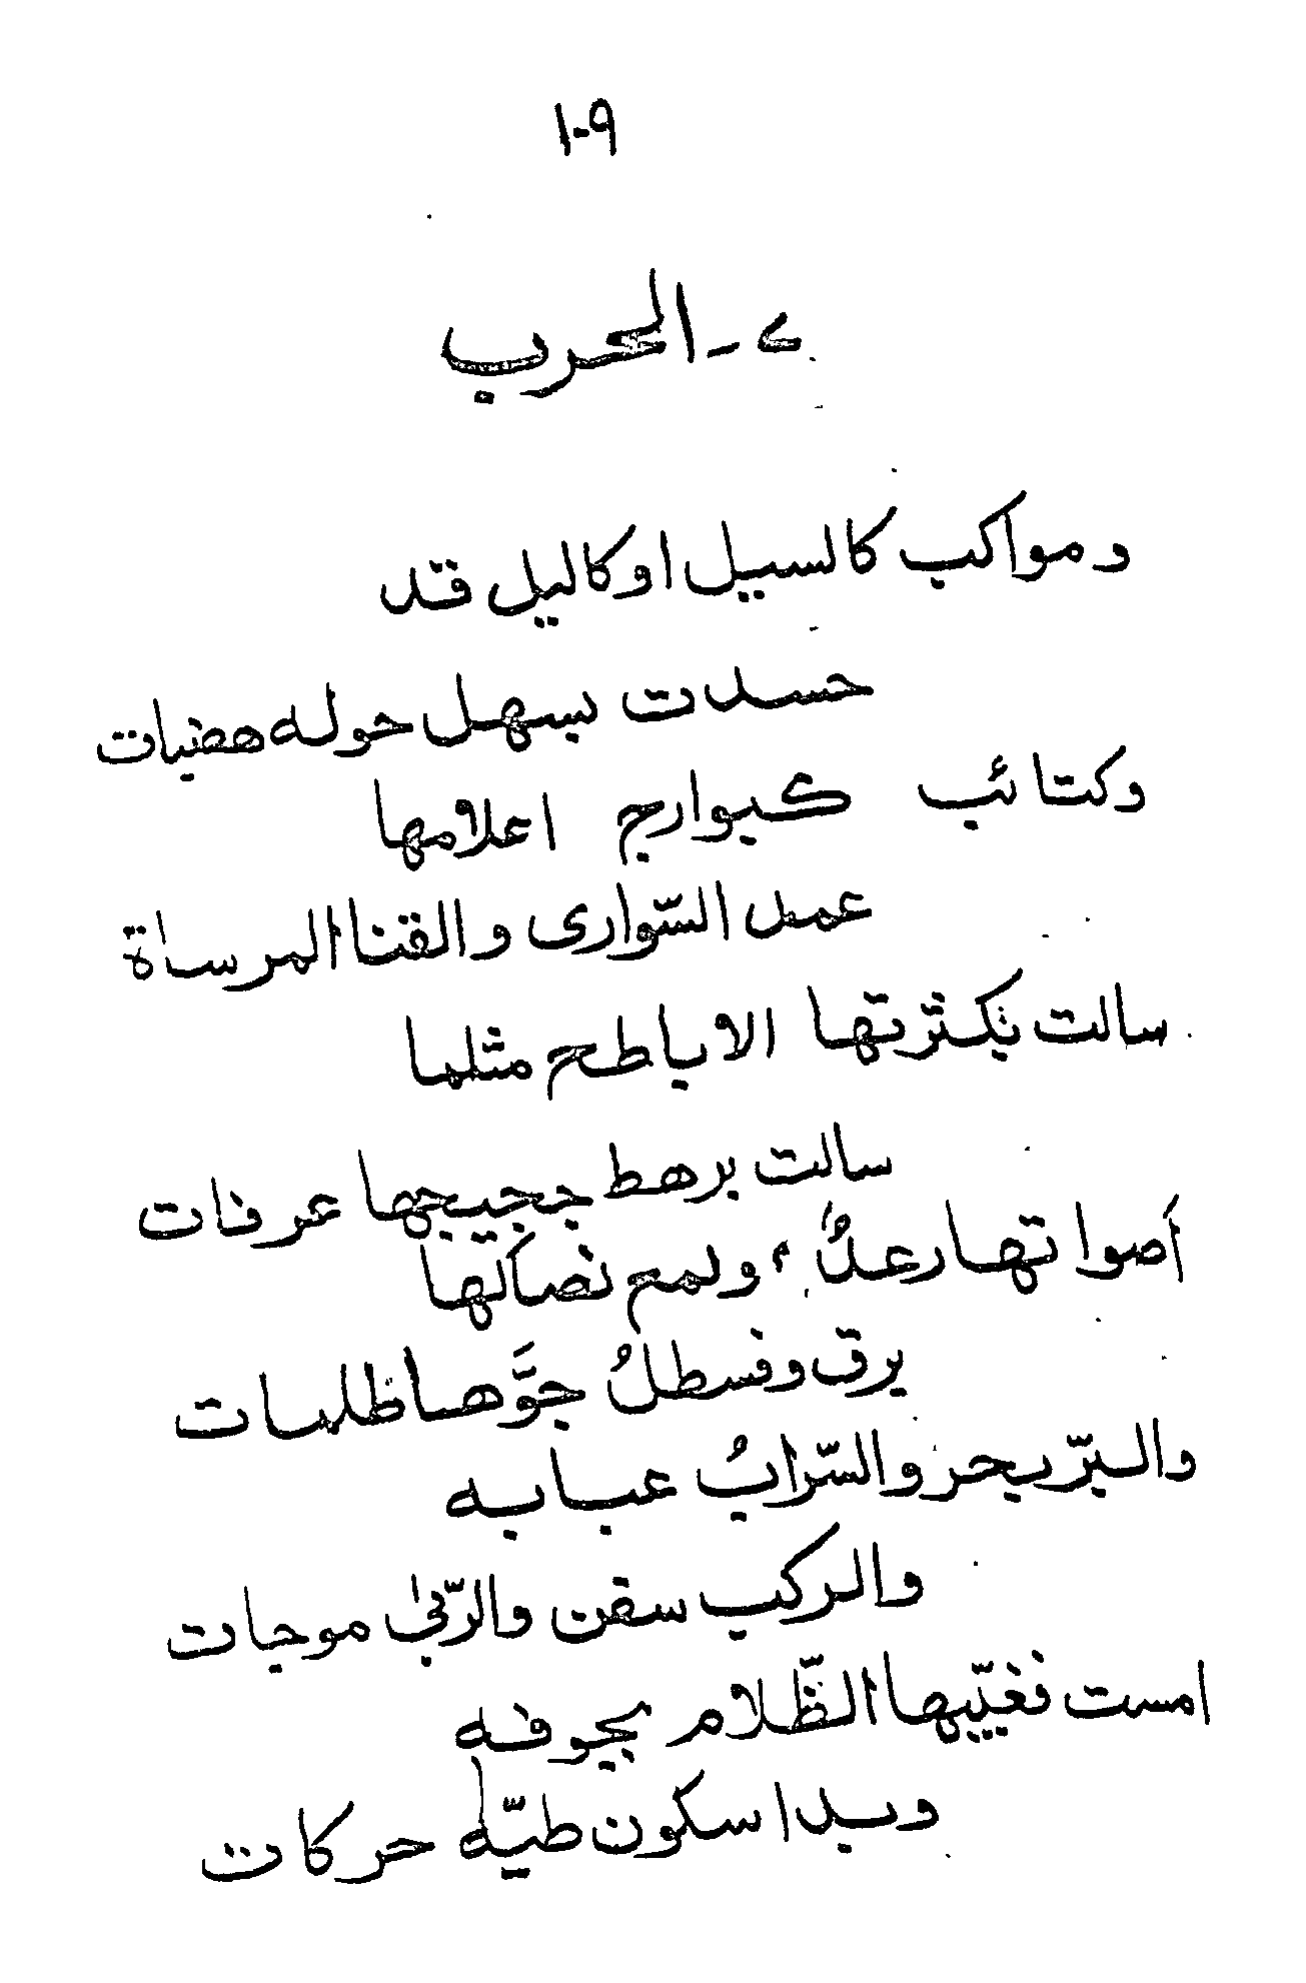 ١٠٩
ے - الحرب
ومواكب كالسيل او كاليل قد
حسدت بسهل حوله هضبات
وكتائب كبوارج اعلامها
عمد السّوارى والقنا المرساة
سالت بكثرتها الاباطح مثلما
سالت برهط حجيجها عرفات
أصواتها رعدٌ، ولمع نصالها
برق وقسطلُ جوَّها ظلمات
والبرّ بحر والسّرابُ عبابه
والركب سفن والرّبىٰ موجات
امست فغيّبها الظّلام بجوفه
وبدا سكون طيّه حركات